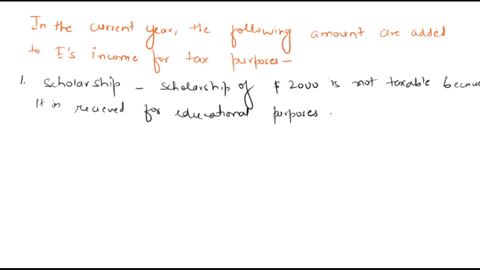 In the current year, the following amount are added
to E's income for tax purposes—
1. Scholarship - Scholarship of $ 2000 is not taxable becau
It is recieved for educational purposes.